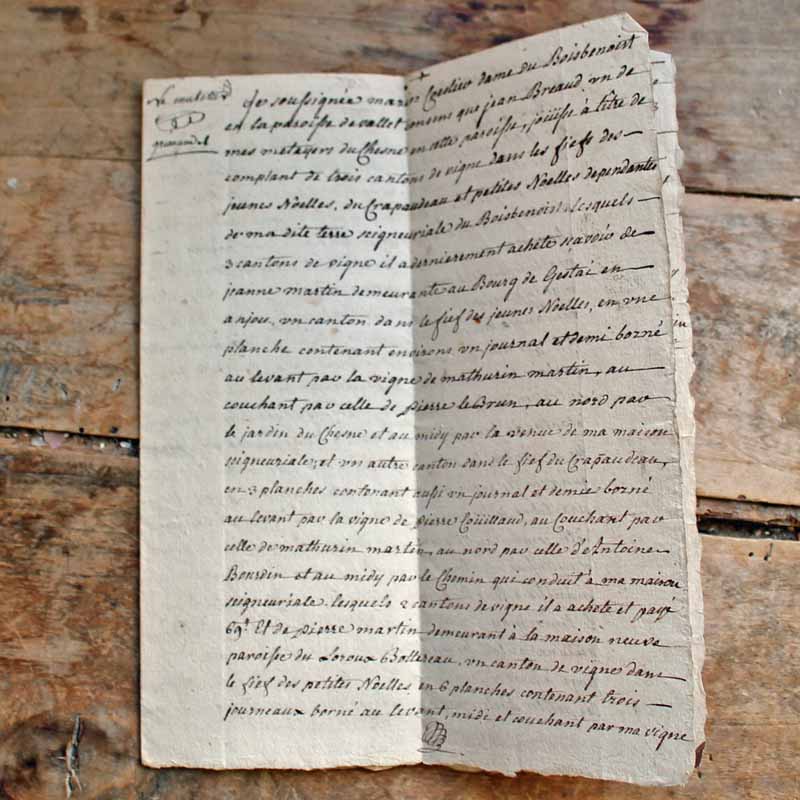 Je soussignée marie Crestien dame du Boisbenoist
en la paroisse de vallet que jean Breaud, un de
mes metayers du Chesne en cette paroisse, joüisse à titre de
complant de trois cantons de vigne dans les fiefs des
jeunes Noelles, du Crapaudeau et petites Noelles dependantes
de ma dite terre seigneuriale du Boisbenoist, lesquels
3 cantons de vigne il a dernierement acheté scavoir de
jeanne martin demeurante au Bourg de Gestai en
anjou, un canton dans le fief des jeunes Noelles, en une
planche contenant environs un journal et demi borné
au levant par la vigne de mathurin martin, au
couchant par celle de pierre le Brun, au nord par
le jardin du Chesne et au midy par la venue de ma maison
seigneuriale; et un autre canton dans le fief du Crapaudeau,
en 3 planches contenant aussi un journal et demie borné
au levant par la vigne de pierre Coüillaud, au Couchant par
celle de mathurin martin, au nord par celle d'Antoine
Bourdin et au midy par le Chemin qui conduit à ma maison
seigneuriale. lesquels 2 cantons de vigne il a acheté et payé
69# Et de pierre martin demeurant à la maison neuve
paroisse du Loroux Bottereau, un canton de vigne dans
le fief des petites Noelles en 6 planches contenant trois
journeaux borné au levant, midi et couchant par ma vigne